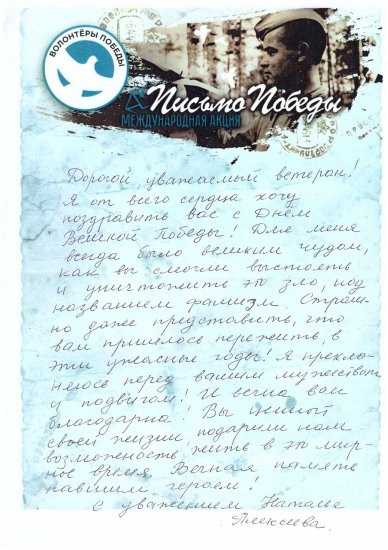 ВОЛОНТЁРЫ ПОБЕДЫ
Письмо Победы
МЕЖДУНАРОДНАЯ АКЦИЯ
Дорогой, уважаемый ветеран!
Я от всего сердца хочу
поздравить вас с Днём
Великой Победы! Для меня
всегда было великим чудом,
как вы смогли выстоять
и уничтожить это зло, под
названием фашизм. Страш-
но даже представить, что
вам пришлось пережить, в
эти ужасные годы! Я прекло-
няюсь перед вашим мужеством
и подвигом! И вечно вам
благодарна! Вы ценной
своей жизни подарили нам
возможность жить в это мир-
ное время. Вечная память
павшим героем!
С уважением Наталья
Алексеева.